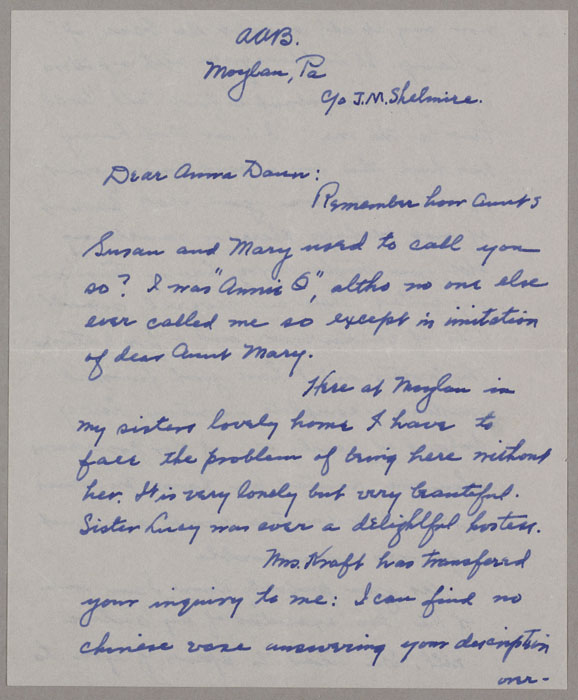 AAB.
Moylan, Pa
c/o J.M. Shelmire.
Dear Anna Dawn:
Remember how Aunts
Susan and Mary used to call you
so? I was "Annie O", altho no one else
ever called me so except in imitation
of dear Aunt Mary.
Here at Moylan in
my sisters lovely home I have to
face the problem of being here without
her. It is very lonely but very beautiful.
Sister Lucy was ever a delightful hostess.
Mrs. Kraft has transfered
your inquiry to me: I can find no
Chinese vase answering your description
over-